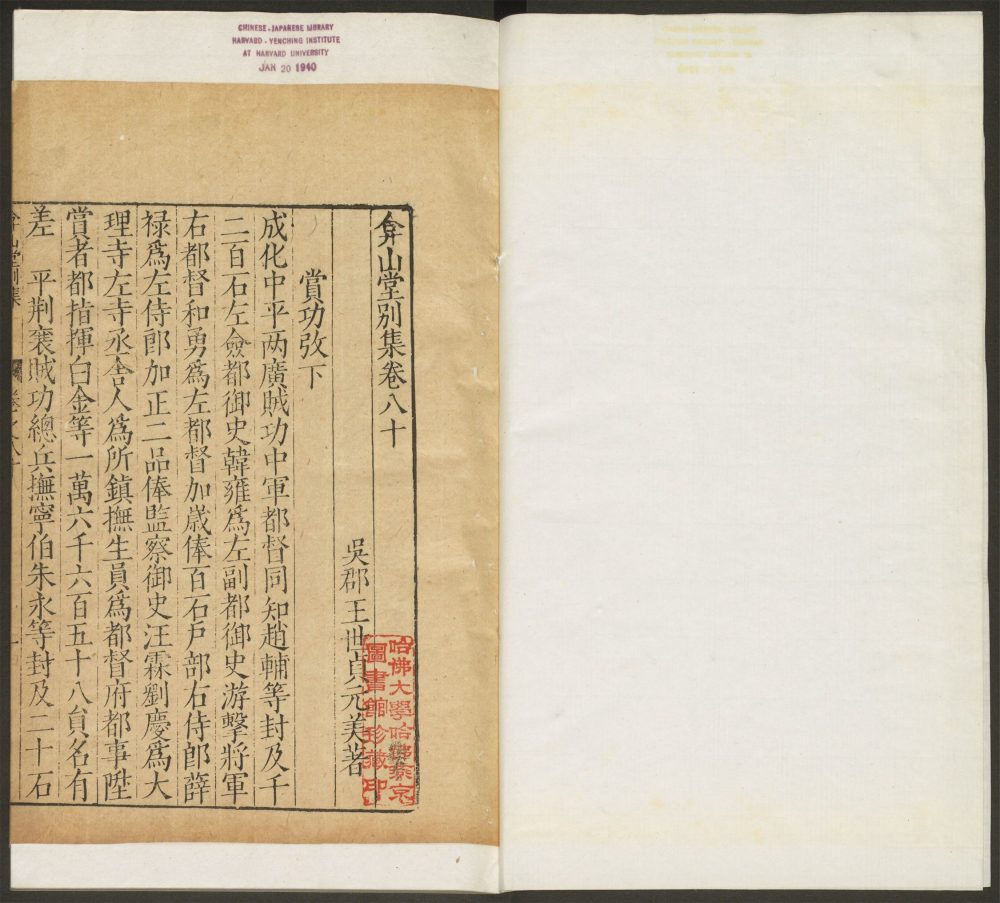 CHINESE-JAPANESE LIBRARY
HARVARD-YENCHING INSTITUTE
AT HARVARD UNIVERSITY
JAN 20 1940
弇山堂別集卷八十
吳郡王世貞元美著
賞功攷下
成化中平两廣賊功中軍都督同知趙輔等封及千
二百石左僉都御史韓雍爲左副都御史游擊將軍
右都督和勇爲左都督加歲俸百石戶部右侍郎薛
祿爲左侍郎加正二品俸監察御史汪霖劉慶爲大
理寺左寺丞舎人爲所鎮撫生員爲都督府都事陞
賞者都指揮白金等一萬六千六百五十八貟名有
差　平荆襄賊功總兵撫寧伯朱永等封及二十石
弇山堂別集
卷之八十
一
哈佛大學哈佛燕京
圖書館珍藏印